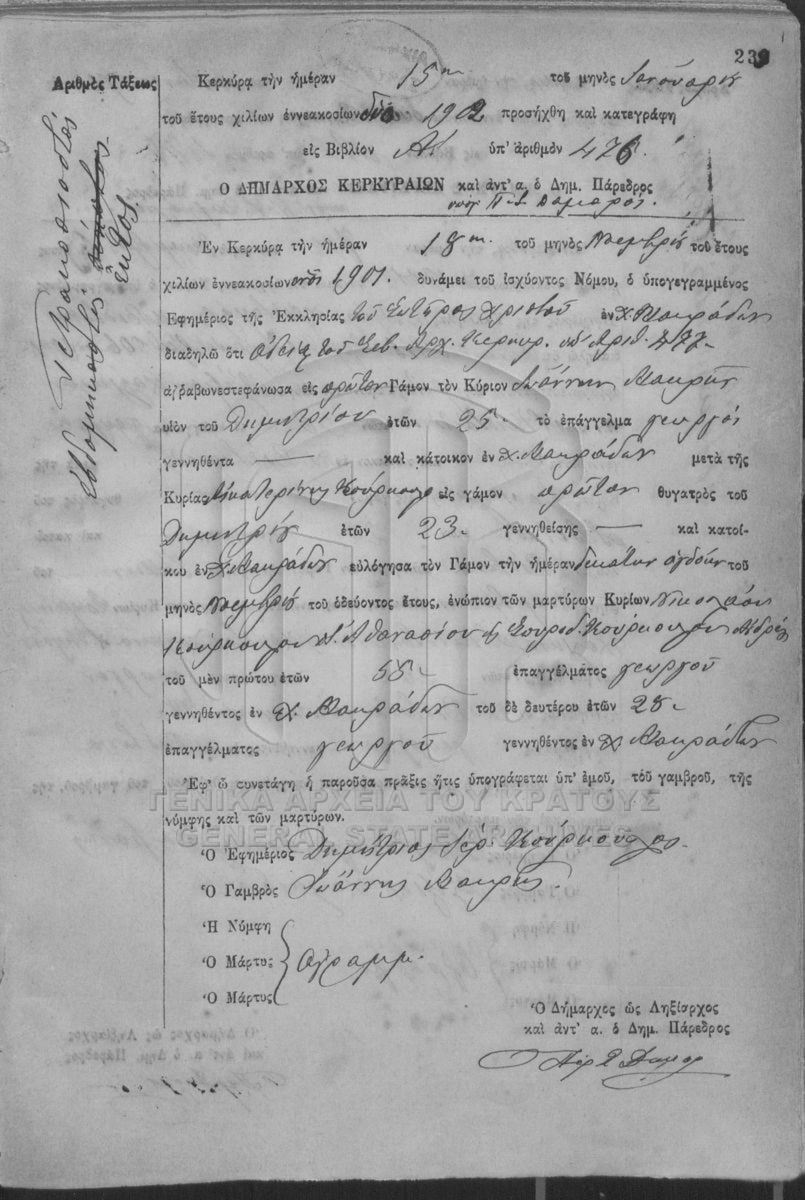 239
Ἀριθμὸς Τάξεως
Τετρακοσιοστός
ἑβδομηκοστός
ἕκτος.
Κερκύρᾳ τὴν ἡμέραν 15ην τοῦ μηνὸς Ἰανουαρίου
τοῦ ἔτους χιλίων ἐννεακοσίων δύο 1902 προσήχθη καὶ κατεγράφη
εἰς Βιβλίον ὑπ' ἀριθμὸν 476.
Ὁ ΔΗΜΑΡΧΟΣ ΚΕΡΚΥΡΑΙΩΝ καὶ ἀντ' α. ὁ Δημ. Πάρεδρος
Ἐν Κερκύρᾳ τὴν ἡμέραν 18ην τοῦ μηνὸς Νοεμβρίου τοῦ ἔτους
χιλίων ἐννεακοσίων ἑνός 1901. δυνάμει τοῦ ἰσχύοντος Νόμου, ὁ ὑπογεγραμμένος
Ἐφημέριος τῆς Ἐκκλησίας τοῦ Σωτῆρος Χριστοῦ ἐν χ. Μακράδων
διαδηλῶ ὅτι ἀδείᾳ τοῦ Σεβ. Ἀρχ. Κερκύρ. ὑπ' Ἀριθ. 477
ἀῤῥαβωνεστεφάνωσα εἰς πρῶτον Γάμον τὸν Κύριον Ἰωάννην Μακρῆν
υἱὸν τοῦ Δημητρίου ἐτῶν 25 τὸ ἐπάγγελμα γεωργός
γεννηθέντα — καὶ κάτοικον ἐν χ. Μακράδων μετὰ τῆς
Κυρίας Αἰκατερίνης Κούρκουλο εἰς γάμον πρῶτον θυγατρὸς τοῦ
Δημητρίου ἐτῶν 23 γεννηθείσης — καὶ κατοί-
κου ἐν χ. Μακράδων εὐλόγησα τὸν Γάμον τὴν ἡμέραν δεκάτην ὀγδόην τοῦ
μηνὸς Νοεμβρίου τοῦ ὁδεύοντος ἔτους, ἐνώπιον τῶν μαρτύρων Κυρίων Νικολάου
Κούρκουλου Ἀθανασίου Σπυρίδ. Κούρκουλου Ἀνδρέα
τοῦ μὲν πρώτου ἐτῶν 55 ἐπαγγέλματος γεωργοῦ
γεννηθέντος ἐν χ. Μακράδων τοῦ δὲ δευτέρου ἐτῶν 28
ἐπαγγέλματος γεωργοῦ γεννηθέντος ἐν χ. Μακράδων
Ἐφ' ᾧ συνετάγη ἡ παροῦσα πρᾶξις ἥτις ὑπογράφεται ὑπ' ἐμοῦ, τοῦ γαμβροῦ, τῆς
νύμφης καὶ τῶν μαρτύρων.
ΓΕΝΙΚΑ ΑΡΧΕΙΑ ΤΟΥ ΚΡΑΤΟΥΣ
GENERAL STATE ARCHIVES
Ὁ Ἐφημέριος Δημήτριος Ἱερ. Κούρκουλος
Ὁ Γαμβρὸς Ἰωάννης Μακρῆς
Ἡ Νύμφη
Ὁ Μάρτυς ἀγράμμ.
Ὁ Μάρτυς
Ὁ Δήμαρχος ὡς Ληξίαρχος
καὶ ἀντ' α. ὁ Δημ. Πάρεδρος